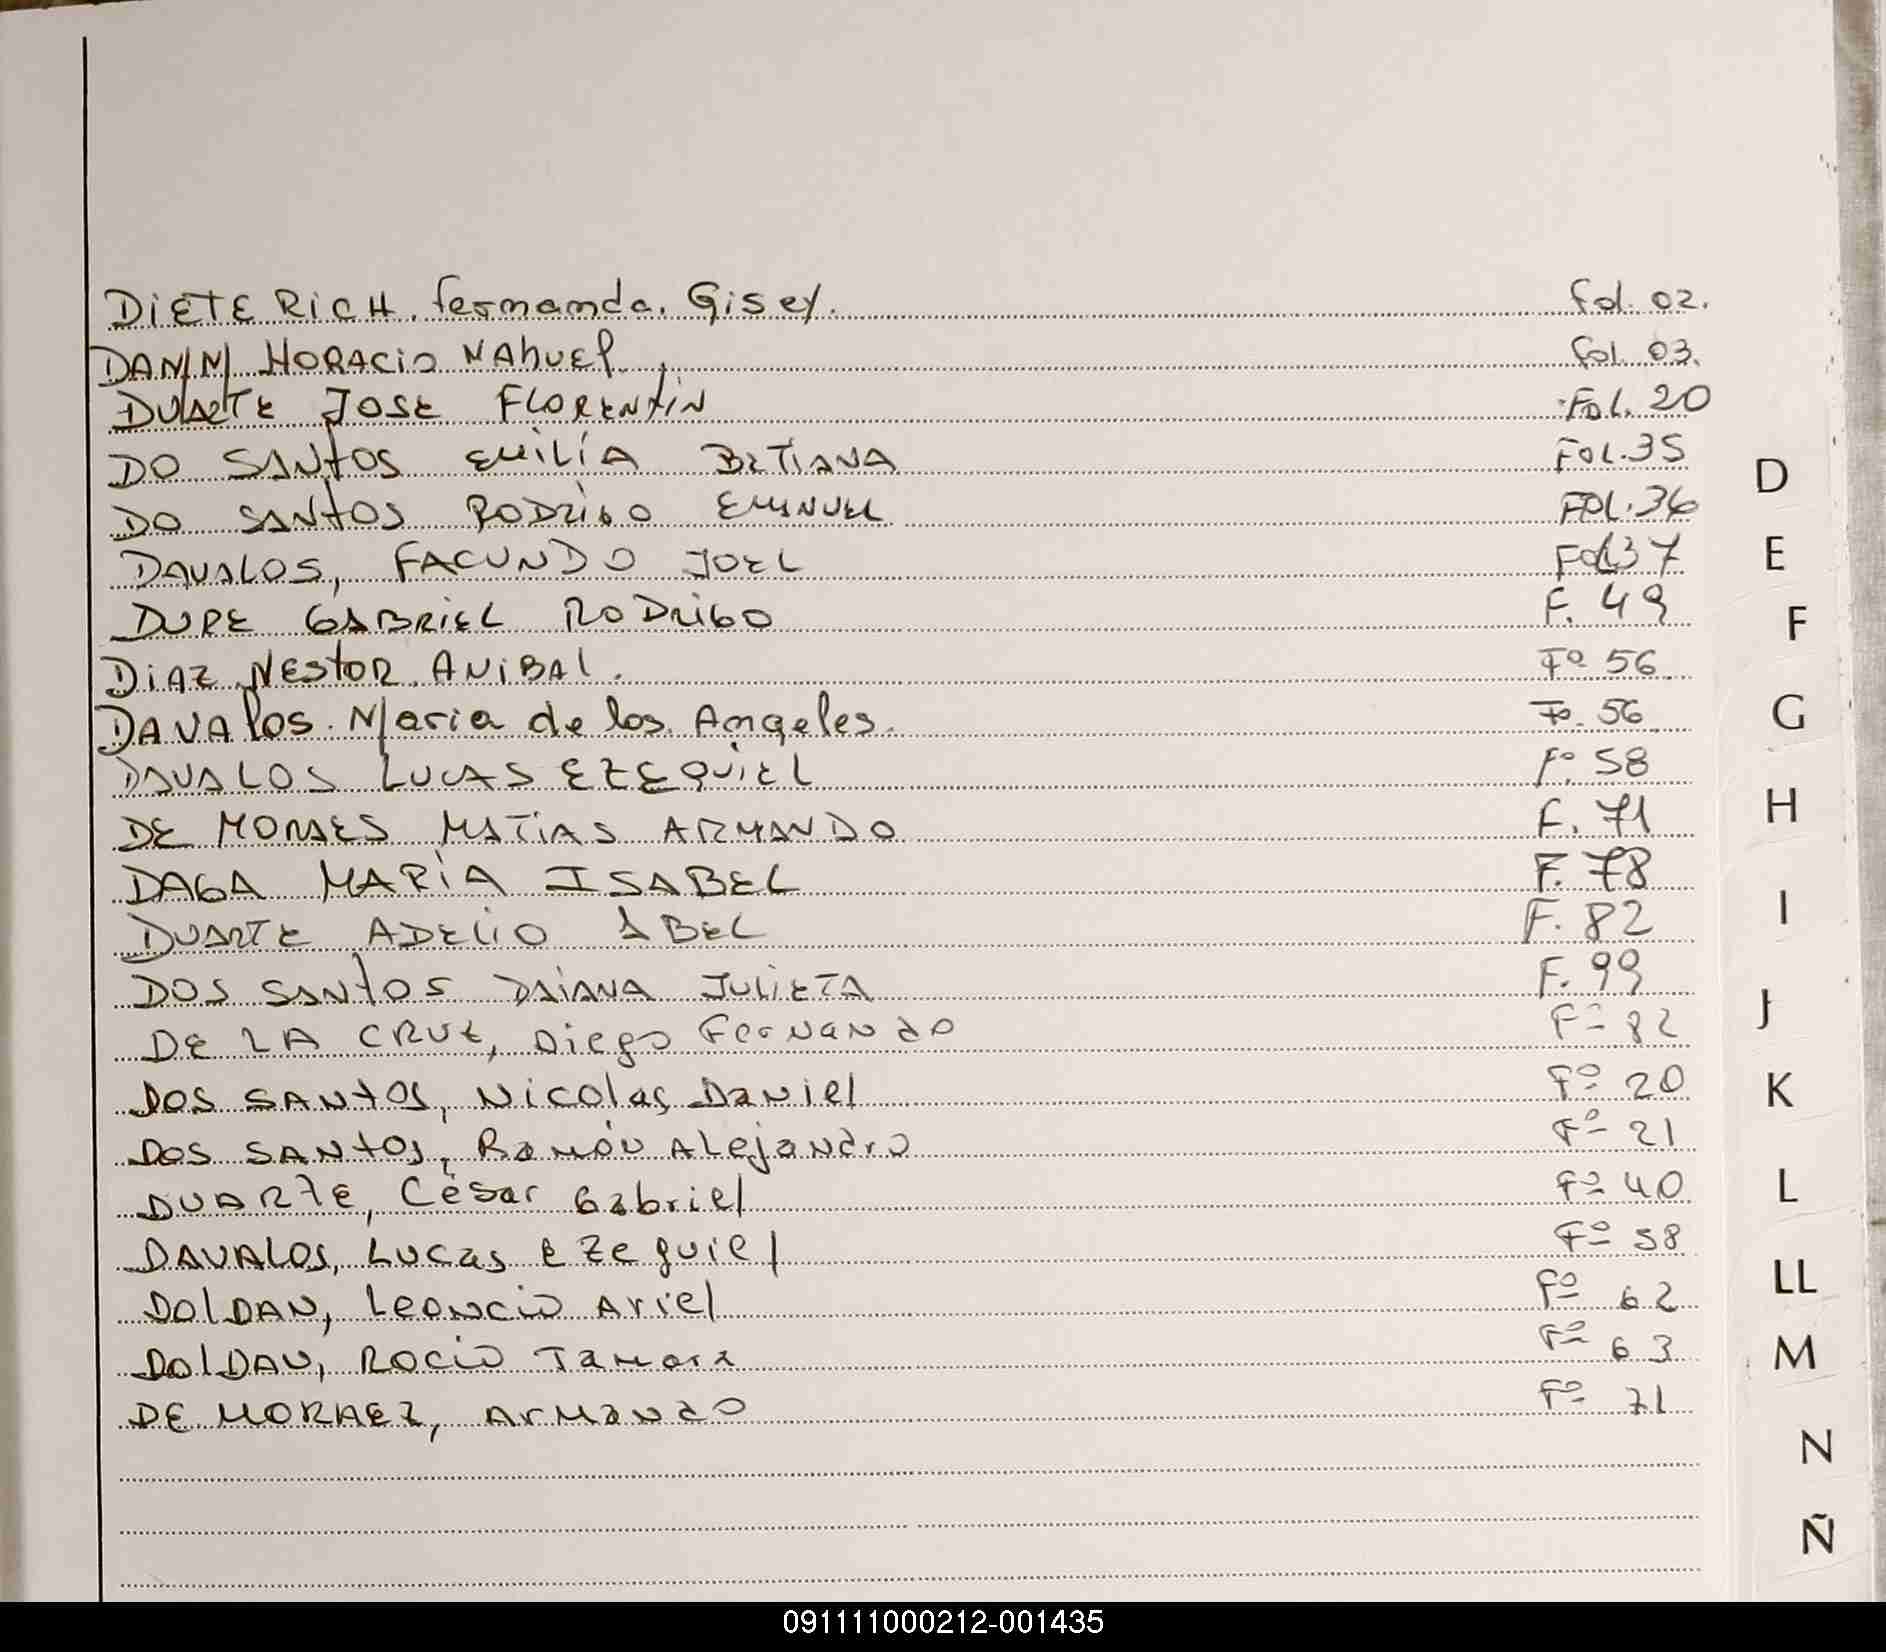 DIETERICH. fernanda. Gisey. Fol. 02.
DANN HORACIO NAHUEL. Fol. 03.
DUARTE JOSE FLORENTIN Fol. 20
DO SANTOS EMILIA BETIANA Fol. 35
DO SANTOS RODRIGO EMANUEL FOL. 36
DAVALOS, FACUNDO JOEL Fol 37
DUPE GABRIEL RODRIGO F. 49
DIAZ NESTOR ANIBAL. Fº 56
DAVALOS. Maria de los Angeles. Fº. 56
DAVALOS LUCAS EZEQUIEL Fº. 58
DE MORAES MATIAS ARMANDO F. 71
DAGA MARIA ISABEL F. 78
DUARTE ADELIO ABEL F. 82
DOS SANTOS DAIANA JULIETA F. 99
DE LA CRUZ, Diego Fernando Fº 82
DOS SANTOS, Nicolas Daniel Fº 20
DOS SANTOS, Ramón Alejandro Fº 21
DUARTE, César Gabriel Fº 40
DAVALOS, Lucas Ezequiel Fº 58
DOLDAN, Leoncio Ariel Fº 62
DOLDAN, Rocío Tamara Fº 63
DE MORAEZ, Armando Fº 71
D
E
F
G
H
I
J
K
L
LL
M
N
Ñ
091111000212-001435